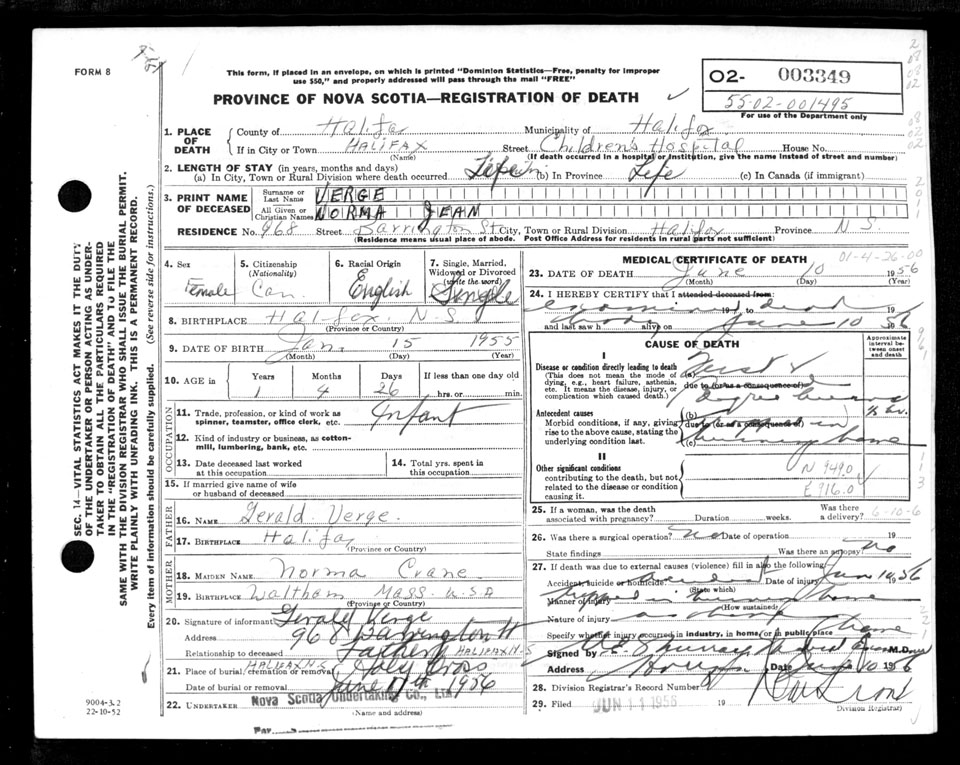 FORM 8
This form, if placed in an envelope, on which is printed "Dominion Statistics—Free, penalty for improper
use $50," and properly addressed will pass through the mail "FREE"
PROVINCE OF NOVA SCOTIA—REGISTRATION OF DEATH
O2- 003349
55-02-001495
For use of the Department only
1. PLACE OF DEATH
County of Halifax Municipality of Halifax
If in City or Town HALIFAX Street Children's Hospital House No.
(Name) (If death occurred in a hospital or institution, give the name instead of street and number)
2. LENGTH OF STAY (in years, months and days)
(a) In City, Town or Rural Division where death occurred Life (b) In Province Life (c) In Canada (if immigrant)
3. PRINT NAME OF DECEASED
Surname or Last Name VERGE
All Given or Christian Names NORMA JEAN
RESIDENCE No. 968 Street Barrington St. City, Town or Rural Division Halifax Province N.S.
(Residence means usual place of abode. Post Office Address for residents in rural parts not sufficient)
4. Sex Female
5. Citizenship (Nationality) Can.
6. Racial Origin English
7. Single, Married, Widowed or Divorced (write the word) Single
8. BIRTHPLACE Halifax N.S.
(Province or Country)
9. DATE OF BIRTH Jan. 15 1955
(Month) (Day) (Year)
10. AGE in Years Months Days If less than one day old
1 4 26 hrs. or min.
OCCUPATION
11. Trade, profession, or kind of work as spinner, teamster, office clerk, etc. Infant
12. Kind of industry or business, as cotton-mill, lumbering, bank, etc.
13. Date deceased last worked at this occupation
14. Total yrs. spent in this occupation
15. If married give name of wife or husband of deceased
FATHER
16. NAME Gerald Verge.
17. BIRTHPLACE Halifax
(Province or Country)
MOTHER
18. MAIDEN NAME Norma Crane
19. BIRTHPLACE Waltham Mass. U.S.A
(Province or Country)
20. Signature of informant Gerald Verge
Address 968 Barrington St
Relationship to deceased Father HALIFAX N-S
21. Place of burial, cremation or removal HALIFAX N.S. Holy Cross
Date of burial or removal June 1956
22. UNDERTAKER Nova Scotia Undertaking Co., Ltd.
(Name and address)
MEDICAL CERTIFICATE OF DEATH
01-4-26-00
23. DATE OF DEATH June 10 1956
(Month) (Day) (Year)
24. I HEREBY CERTIFY that I attended deceased from:
and last saw h alive on June 10 56
CAUSE OF DEATH
Approximate interval between onset and death
I
Disease or condition directly leading to death (a)
(This does not mean the mode of dying, e.g., heart failure, asthenia, etc. It means the disease, injury, or complication which caused death.)
due to (or as a consequence of)
½ hr.
Antecedent causes (b)
Morbid conditions, if any, giving rise to the above cause, stating the underlying condition last.
due to (or as a consequence of)
(c) burning home
II
Other significant conditions contributing to the death, but not related to the disease or condition causing it.
N 949.0
E 916.0
25. If a woman, was the death associated with pregnancy? Duration weeks. Was there a delivery? 6-10-6
26. Was there a surgical operation? No Date of operation 19
State findings Was there an autopsy? No
27. If death was due to external causes (violence) fill in also the following:
Accident, suicide or homicide: Date of injury June 10 1956
(State which)
Manner of injury trapped in burning home
(How sustained)
Nature of injury
Specify whether injury occurred in industry, in home, or in public place home
Signed by M.D.
Address Date June 10 1956
28. Division Registrar's Record Number
29. Filed JUN 11 1956 19
Division Registrar
SEC. 14—VITAL STATISTICS ACT MAKES IT THE DUTY
OF THE UNDERTAKER OR PERSON ACTING AS UNDER-
TAKER TO OBTAIN ALL THE PARTICULARS REQUIRED
IN THE "REGISTRATION OF DEATH" AND TO FILE THE
SAME WITH THE DIVISION REGISTRAR WHO SHALL ISSUE THE BURIAL PERMIT.
WRITE PLAINLY WITH UNFADING INK. THIS IS A PERMANENT RECORD.
Every item of information should be carefully supplied. (See reverse side for instructions.)
9004-3.2
22-10-52